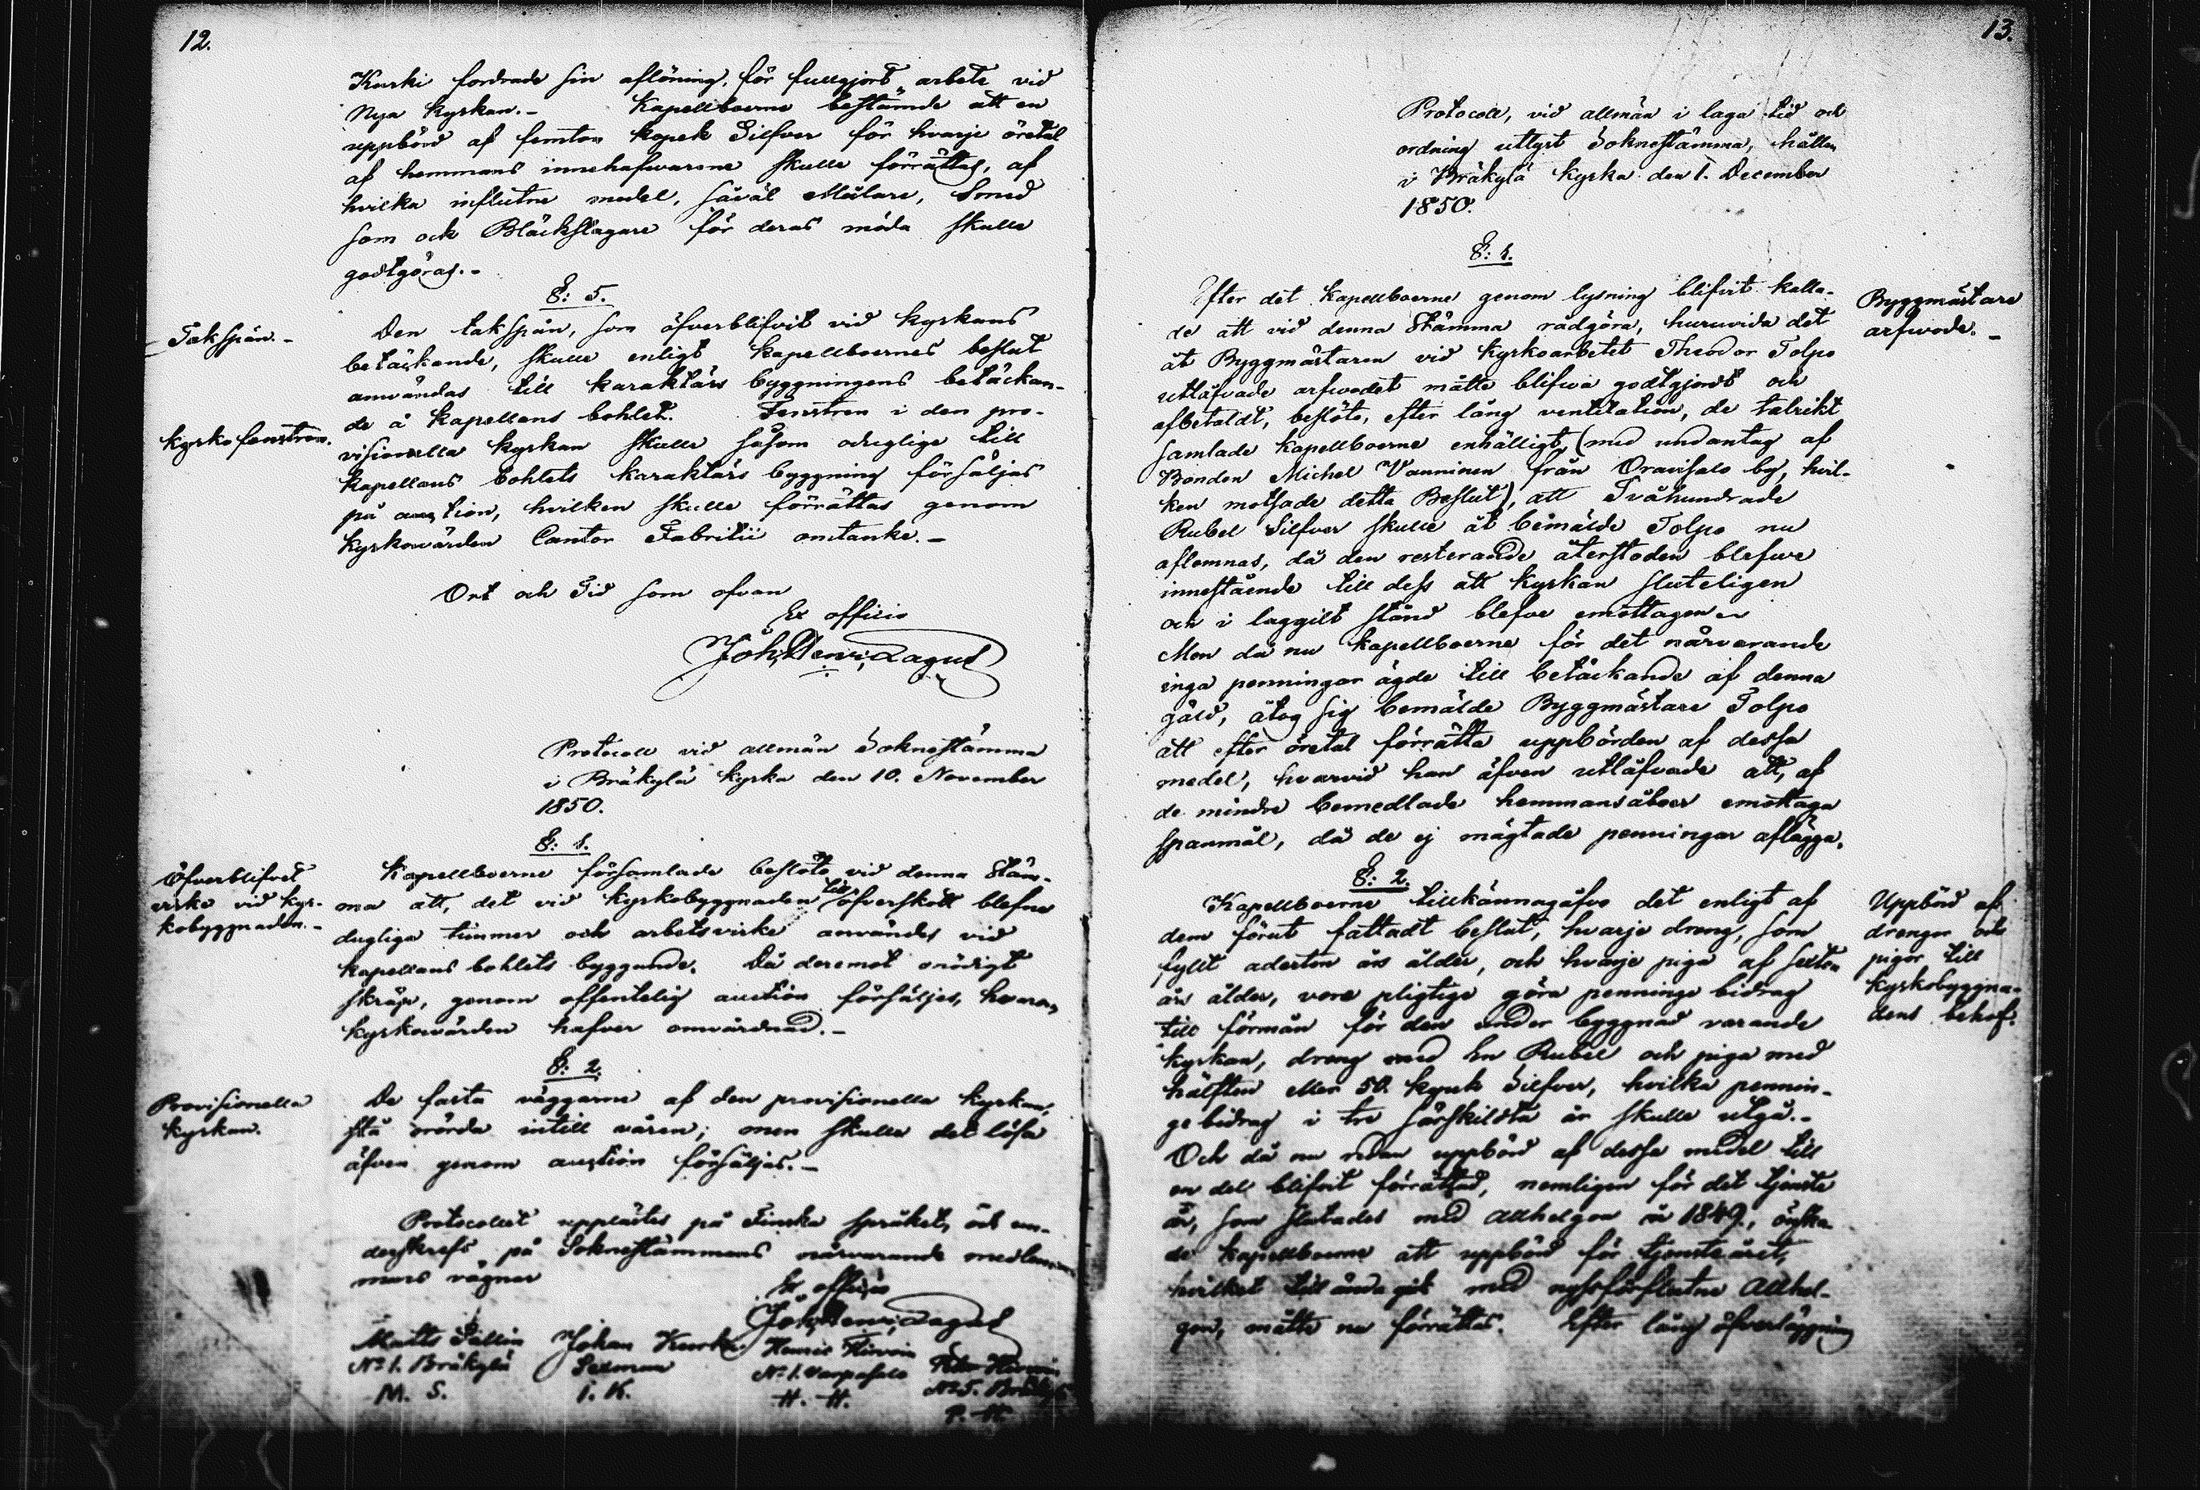 12.
Kurki fordrade sin aflöning, för fullgjort arbete vid
Nya kyrkan.- Kapellboerne bestämde att en
uppbörd af femton kopek Silfver för hvarje öretal
af hemmans innehafvarene skulle förrättas, af
hvilka influtne medel, såväl Målare, Smed
som ock Bläckslagare för deras möda skulle
godtgöras.-
§: 5.
Takspån.-
Den takspån, som öfverblifvit vid kyrkans
betäckande, skulle enligt kapellboernes beslut
användas till karaktärs byggningens betäckan-
de å kapellans bohlet. Fenstren i den pro-
Kyrkofenstren.
visionella kyrkan skulle såsom odugliga till
kapellans bohlets karaktärs byggning försäljas
på auction, hvilken skulle förrättas genom
kyrkovärden Cantor Fabritii omtanke.-
Ort och Tid som ofvan
Ex officio
Joh. Henr. Lagus
Protocoll vid allmän Soknestämma
i Bräkylä kyrka den 10. November
1850.
§: 1.
Öfverblifvet
virke vid kyr-
kobyggnaden.-
Kapellboerne församlade beslöto vid denna Stäm-
ma att, det vid kyrkobyggnaden till öfverskott blefne
dugliga timmer och arbetsvirke användes vid
kapellans bohlets byggande. Då deremot onödigt
skräp, genom offentelig auction försäljes, hvarom
kyrkovärden hafver omvårdnad.-
§: 2.
Provisionella
kyrkan.
De fasta väggarne af den provisionella kyrkan,
stå orörda intill våren; men skulle det lösa
äfven genom auction försäljas.-
Protocollet upplästes på Finska språket, och un-
derskrefs på Soknestämmans närvarande medlem-
mars vägnar
Ex officio
Joh. Henr. Lagus
Matts Sallin Johan Kurki Henric Hirvin Petter Hirvin
N:o 1. Bräkylä Sexman N:o 1. Varpasalo N:o 5. Bräkylä
M. S. I. K. H. H. P. H.
13.
Protocoll, vid allmän i laga tid och
ordning utlyst Soknestämma, hållen
i Bräkylä kyrka den 1. December
1850.
§: 1.
Byggmästare
arfvode.-
Efter det kapellboerne genom lysning blifvit kalla-
de att vid denna Stämma rådgöra, huruvida det
åt Byggmästaren vid kyrkoarbetet Theodor Tolpo
utlåfvade arfvodet måtte blifva godtgjordt och
afbetaldt, beslöto, efter lång ventilation, de talrikt
samlade kapellboerne enhälligt, (med undantag af
Bonden Michel Vanninen från Oravisalo by, hvil-
ken motsade detta Beslut), att Tvåhundrade
Rubel Silfver skulle åt bemälde Tolpo nu
aflemnas, då den resterande återstoden blefve
innestående till dess att kyrkan sluteligen
och i laggilt stånd blefve emottagen.
Men då nu kapellboerne för det närvarande
inga penningar ägde till betäckande af denna
gäld, åtog sig bemälde Byggmästare Tolpo
att efter öretal förrätta uppbörden af dessa
medel, hvarvid han äfven utlåfvade att, af
de mindre bemedlade hemmansåboer emottaga
spanmål, då de ej mägtade penningar aflägga.
§: 2.
Uppbörd af
drengar och
pigor till
kyrkobyggna-
dens behof.
Kapellboerne tillkännagåfvo det enligt af
dem förut fattadt beslut, hvarje dreng, som
fyllt aderton års ålder, och hvarje piga af sexton
års ålder, vore pligtige göra penninge bidrag
till förmån för den under byggnad varande
kyrkan, dreng med En Rubel och piga med
hälften eller 50. kopek Silfver, hvilka pennin-
ge bidrag i tre särskildta år skulle utgå.-
Och då nu redan uppbörd af dessa medel till
en del blifvit förrättad, nemligen för det tjenste
år, som slutades med Allhelgon år 1849., önska-
de kapellboerne att uppbörd för tjensteåret,
hvilket till ända gick med nyssförflutne Allhel-
gon, måtte nu förrättas. Efter lång öfverläggning